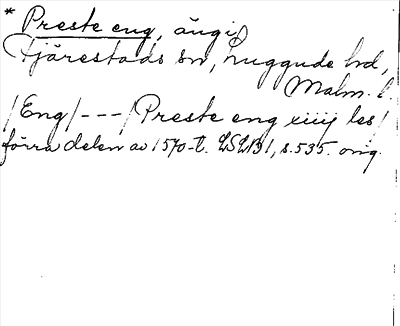 * Preste eng, äng i
Tjärestads sn, Ljuggude hd,
Malm. l.
/Eng/---/Preste eng xiiij les/
förra delen av 1570-t. LSLB1, s. 535. orig.